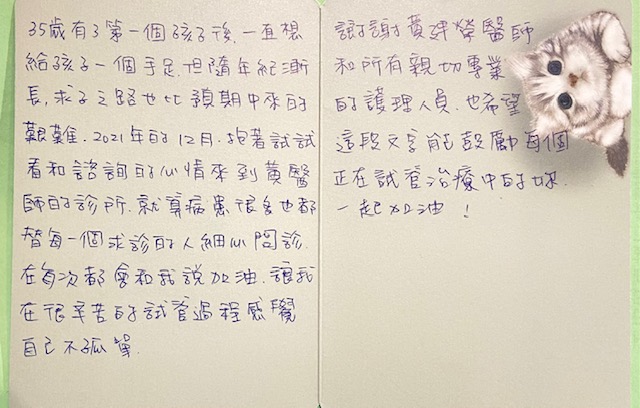 35歲有了第一個孩子後,一直想
給孩子一個手足.但隨年紀漸
長,求子之路也比預期中來的
艱難.2021年的12月.抱著試試
看和諮詢的心情來到黃醫
師的診所.就算病患很多也都
替每一個求診的人細心問診.
在每次都會和我說加油.讓我
在很辛苦的試管過程感覺
自己不孤單.
謝謝黃建榮醫師
和所有親切專業
的護理人員.也希望
這段文字能鼓勵每個
正在試管治療中的妳.
一起加油!